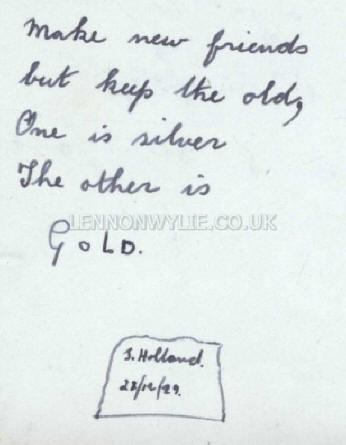 Make new friends
but keep the old,
One is silver
The other is
LENNONWYLIE.CO.UK
GOLD.
S. Holland.